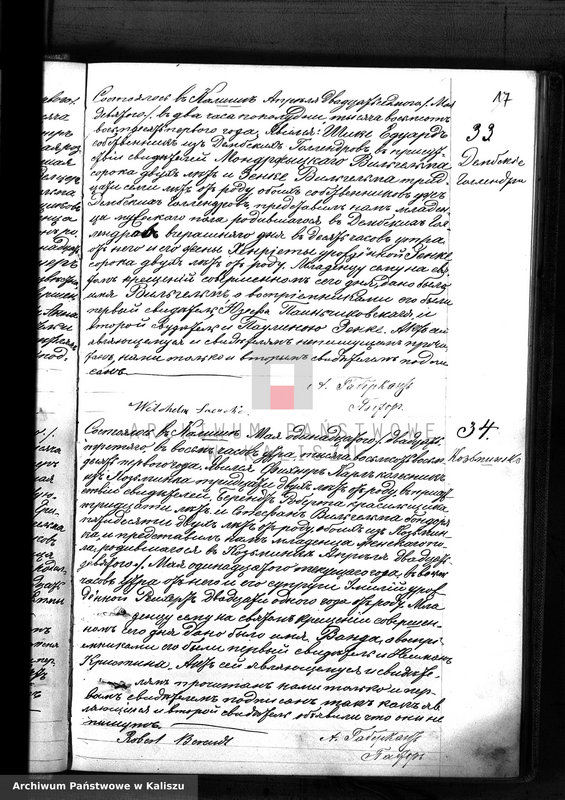 17
33
Дембске
Голлендри
Состоялось въ Калишѣ Апрѣля двадцать седьмаго / Мая
девятаго / въ два часа пополудни тысяча восемьсотъ
восемьдесятъ перваго года. Явился: Эдуардъ
собственникъ изъ Дембскихъ Голлендровъ въ присут-
ствіи свидѣтелей Вильгельма
сорока двухъ лѣтъ и Зенке Вильгельма трид-
цати семи лѣтъ отъ роду обоихъ собственниковъ изъ
Дембскихъ Голлендровъ и представилъ намъ младен-
ца мужскаго пола родившагося въ Дембскихъ Гол-
лендрахъ вчерашняго дня въ десять часовъ утра,
отъ него и его жены Хенріетты урожденной Зенке
сорока двухъ лѣтъ отъ роду. Младенцу сему на свя-
томъ крещеніи совершенномъ сего дня, дано было
имя Вильгельмъ а воспріемниками его были
первый свидѣтель и
второй свидѣтель и Паулиною Зенке. Актъ сей
являющемуся и свидѣтелямъ прочи-
танъ, нами только и вторымъ свидѣтелемъ подпи-
санъ.
Пасторъ
Wilhelm
ARCHIWUM PAŃSTWOWE
34.
Состоялось въ Калишѣ Мая одиннадцатаго / двадцать
третьяго, въ восемь часовъ утра, тысяча восемьсотъ восемь-
десятъ перваго года. Явился Карлъ
изъ тридцати двухъ лѣтъ отъ роду въ присут-
ствіи свидѣтелей, Берендъ Роберта красильщика
тридцати лѣтъ и Вильгельма бондаря
пятидесяти двухъ лѣтъ отъ роду обоихъ изъ
и представилъ намъ младенца женскаго по-
ла, родившагося въ Апрѣля двадцать
девятаго / Мая одиннадцатаго текущаго года, въ восемь
часовъ утра отъ него и его супруги Эмиліи урож-
денной двадцати одного года отъ роду. Мла-
денцу сему на святомъ крещеніи совершен-
номъ сего дня дано было имя Ванда, а воспрі-
емниками его были первый свидѣтель и
Христина. Актъ сей являющемуся и свидѣте-
лямъ прочитанъ нами только и пер-
вымъ свидѣтелемъ подписанъ такъ какъ яв-
ляющійся и второй свидѣтель объявили что они не
пишутъ.
Robert Berendt
Пасторъ
Archiwum Państwowe w Kaliszu